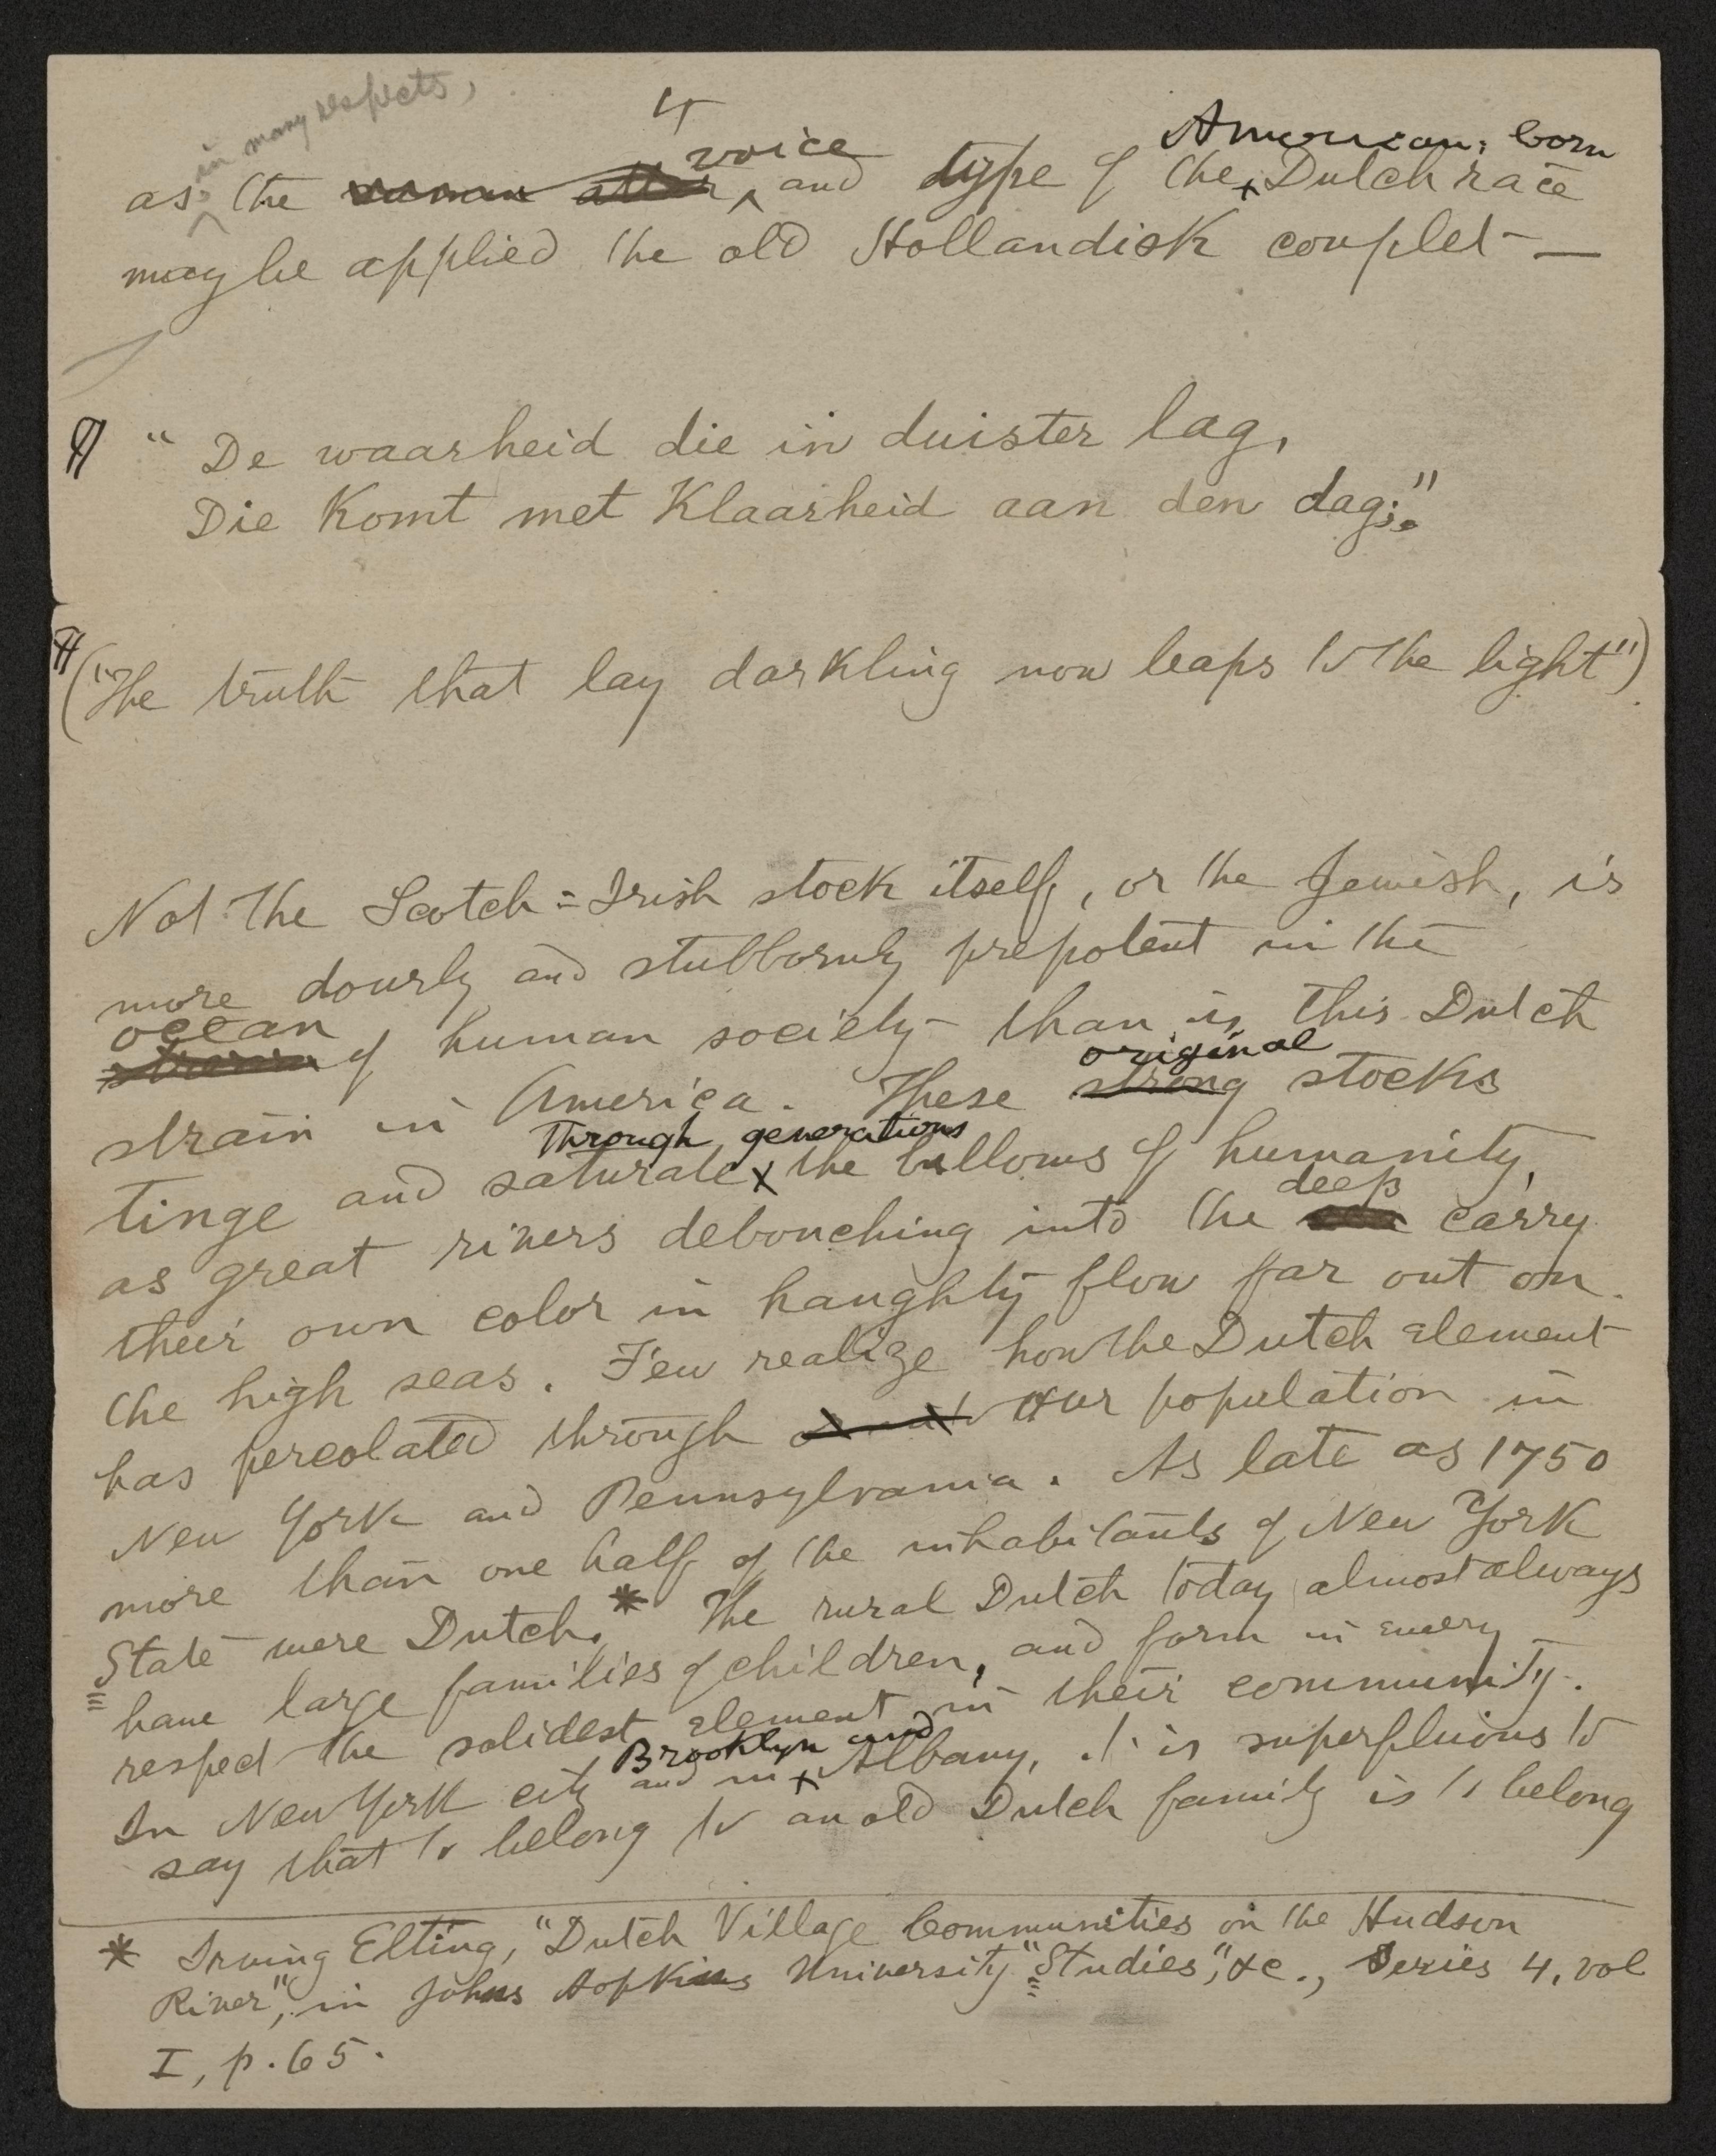 in many respects,
4
voice American-born
as the and type of the Dutch race
may be applied the old Hollandisk couplet —
¶ "De waarheid die in duister lag,
Die Komt met Klaarheid aan den dag;."
¶ ("The truth that lay darkling now leaps to the light")
Not the Scotch=Irish stock itself, or the Jewish, is
more dourly and stubbornly prepotent in the
ocean
of human society than is this Dutch
original
strain in America. These strong stocks
through generations
tinge and saturate the billows of humanity,
deep
as great rivers debouching into the carry
their own color in haughty flow far out on
the high seas. Few realize how the Dutch element
has percolated through our population in
New York and Pennsylvania. As late as 1750
more than one half of the inhabitants of New York
State were Dutch.* The rural Dutch today almost always
have large families of children, and form in every
respect the solidest element in their community.
Brooklyn and
In New York city and in Albany, it is superfluous to
say that to belong to an old Dutch family is to belong
* Irving Elting, "Dutch Village Communities on the Hudson
River", in Johns Hopkins University "Studies", &c., Series 4, vol
I, p. 65.